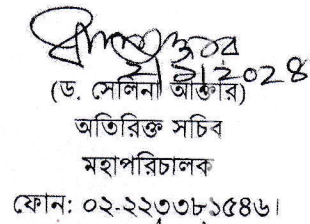 ২/৯/২০২৪
(ড. সেলিনা আক্তার)
অতিরিক্ত সচিব
মহাপরিচালক
ফোন: ০২-২২৩৩৮১৫৪৬।